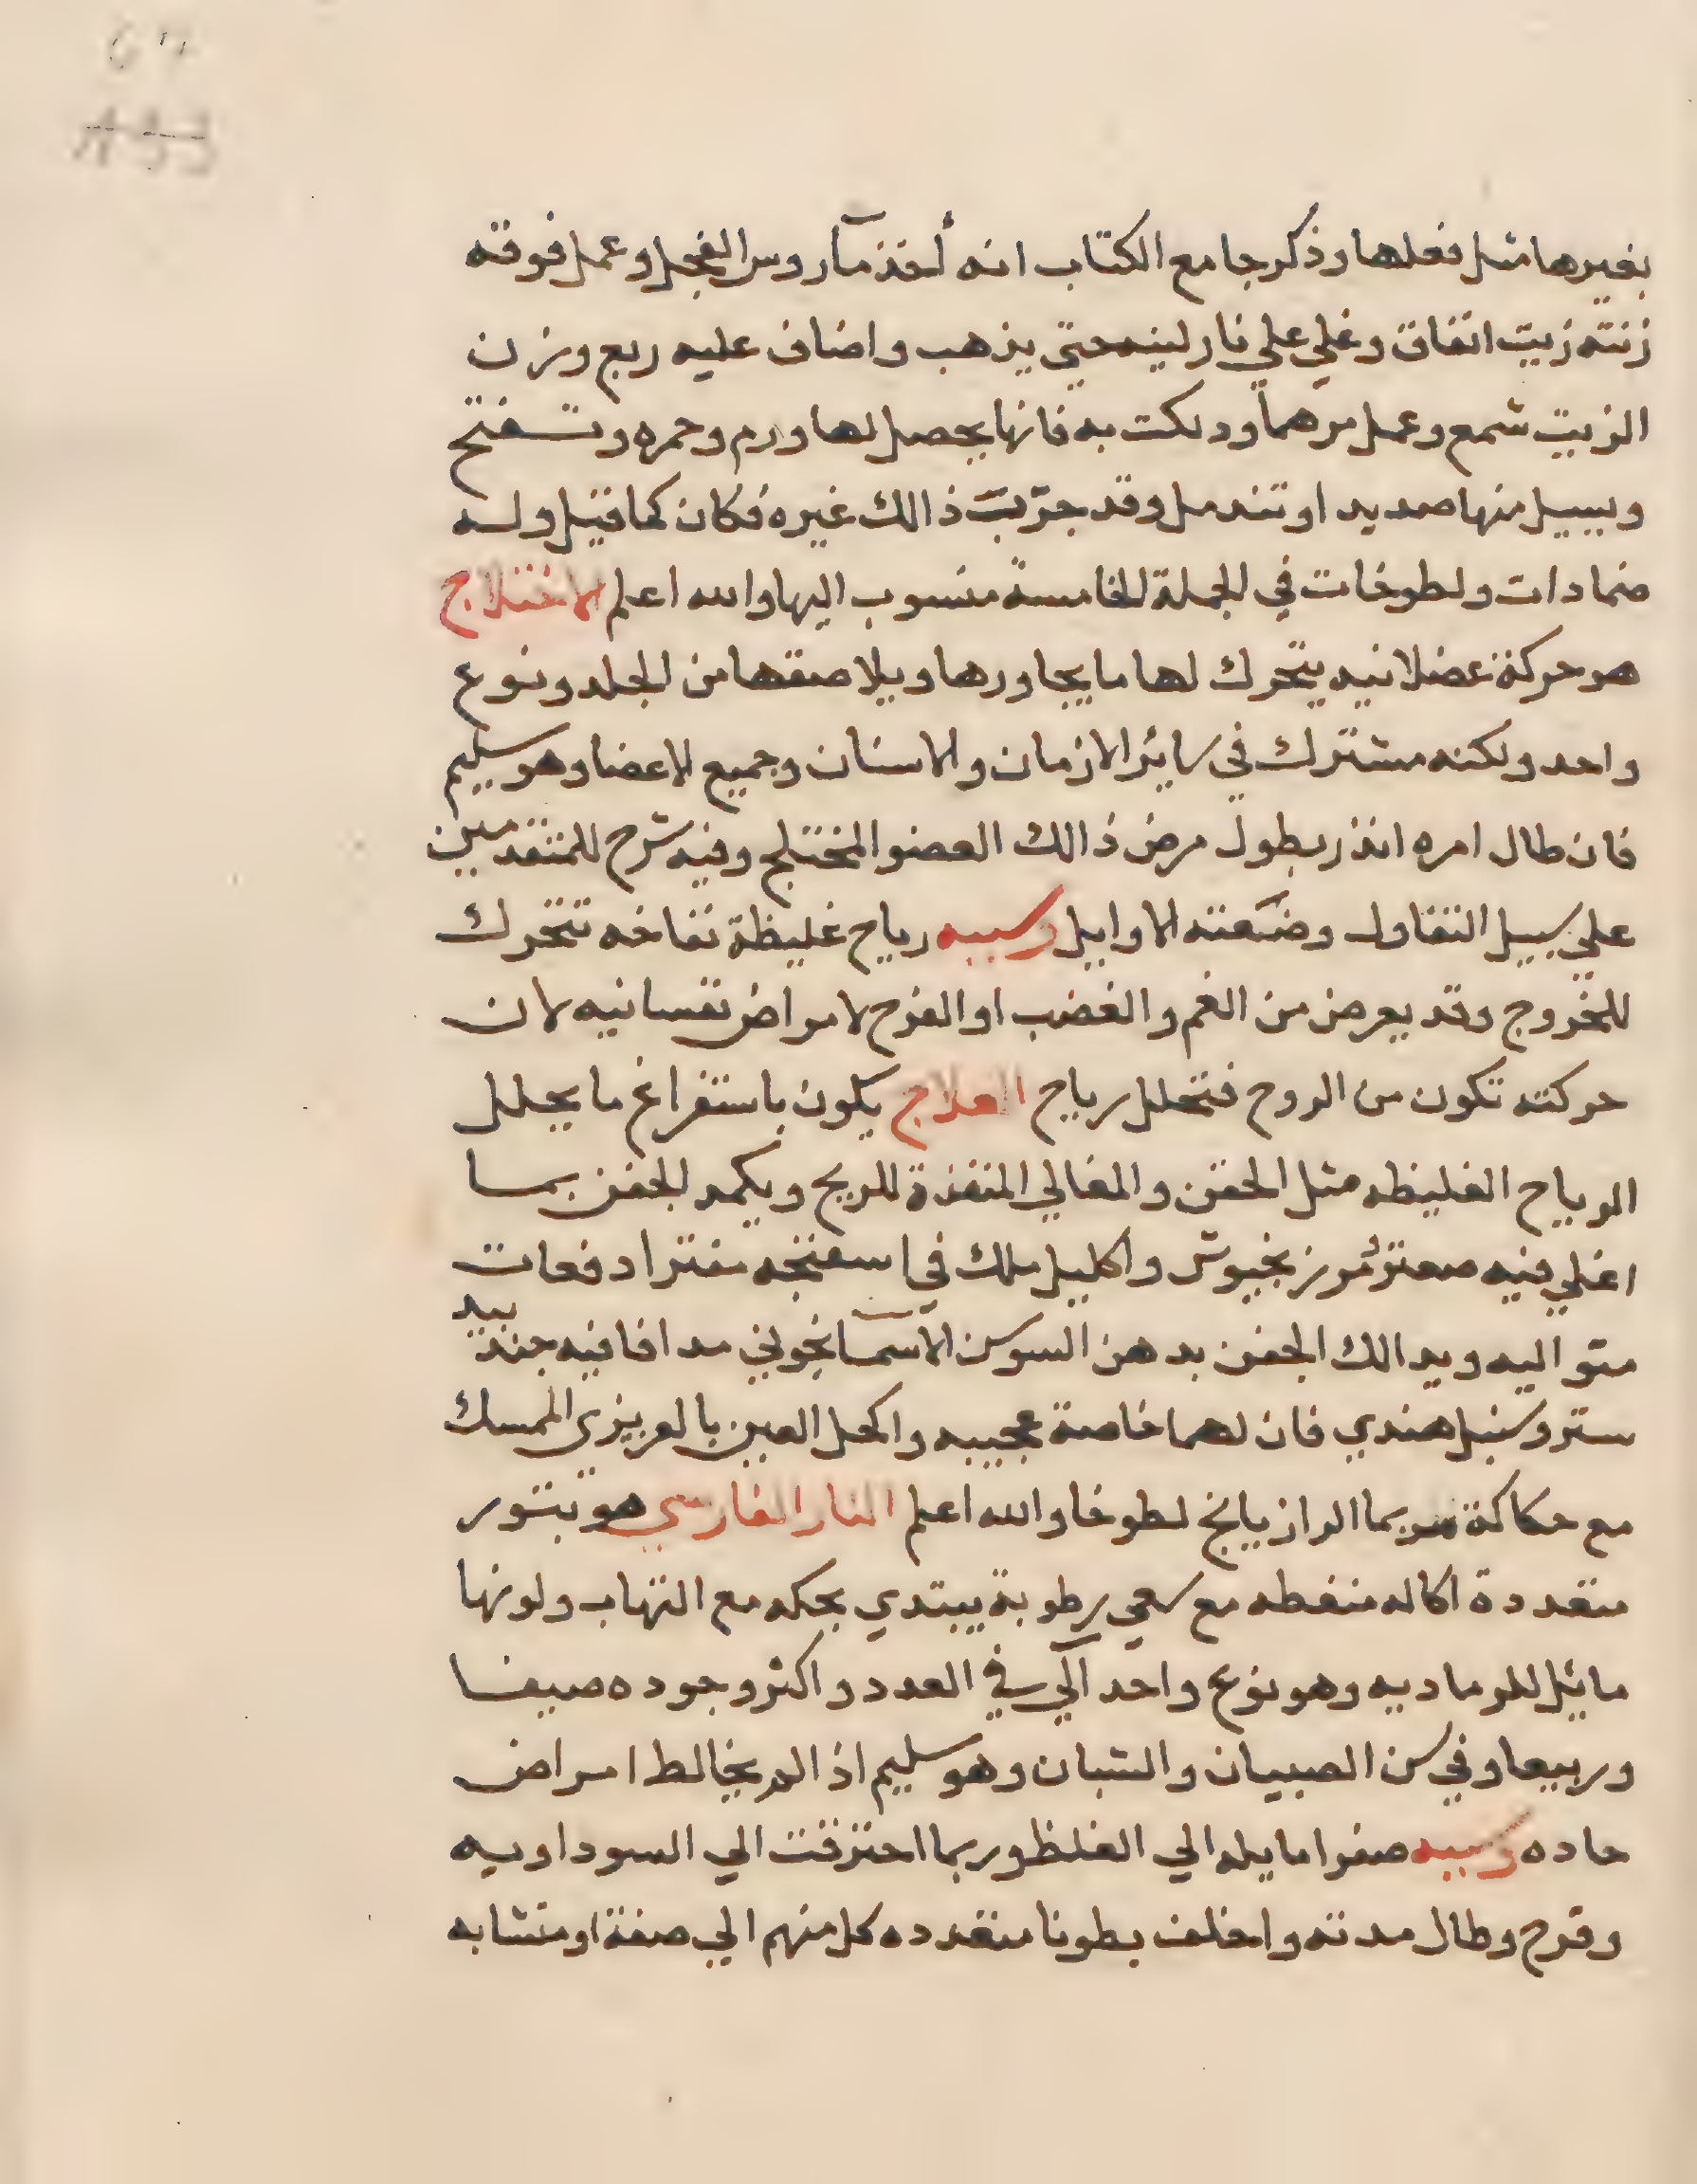 بغيرها مثل فعلها وذكر جامع الكتاب انه أخذ مآ روس الفجل وعمل فوقه
زنته زيت انفاق وغلي علي نار لينه حتي يذهب واضاف عليه ربع وزن
الزيت شمع وعمل مرهما ودلكت به فانها يحصل لها ورم وحمره وتسفتح
ويسيل منها صديد او تندمل وقد جرّبت ذالك غيره فكان كما قيل وله
ضمادات ولطوخات في الجملة الخامسة منسوب اليها والله اعلم الاختلاج
هو حركة عضلانيه يتحرك لها ما يجاورها ويلاصقها من الجلد ونوع
واحد ولكنه مشترك في سائر الازمان والاسنان وجميع الاعضا وهو سليم
فان طال امره انذر بطول مرض ذالك العضو المختلج وفيه شرح للمتقدمين
علي سبيل التفاول وضعته الاوايل وسببه رياح غليظة نفاخه تتحرك
للخروج وقد يعرض من الغم والغضب او الفرح لامراض نفسانيه لان
حركته تكون من الروح فتحلل رياح العلاج يكون باستفراغ ما يحلل
الرياح الغليظه مثل الحقن والمغالي المنفذة للريح ويكمد الجفن بما
اغلي فيه صعتر ومرزنجوش واكليل ملك في اسفنجه مفترا دفعات
متواليه ويدالك الجفن بدهن السوسن الاسمآنجوني مدافا فيه جند بيد
ستر وسنبل هندي فان لهما خاصة عجيبه واكحل العين بالعزيزي الممسك
مع حكاكة بما الرازيانج لطوخا والله اعلم النار الفارسي هو بثور
متعددة اكاله منفطه مع سعي رطوبة يبتدي بحكه مع التهاب ولونها
مائل للرماديه وهو نوع واحد آلي في العدد واكثر وجوده صيفا
وربيعا وفي سن الصبيان والشبان وهو سليم اذا لم يخالط امراض
حاده وسببه صفرا مايله الي الغلظ وربما احترقت الي السوداويه
وقرح وطال مدته واخلف بطونا متعدده كل منهم الي صفة او متشابه